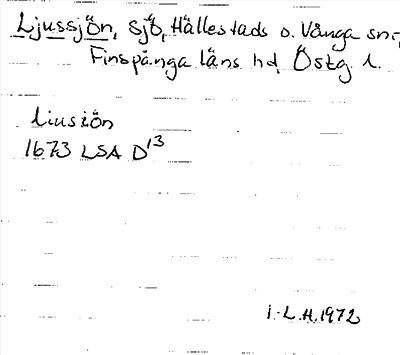 Ljussjön, sjö, Hällestads o. Vånga snr,
Finspånga läns hd, Östg. l.
Liusiön
1673 LSA D¹³
I.-L.H. 1972